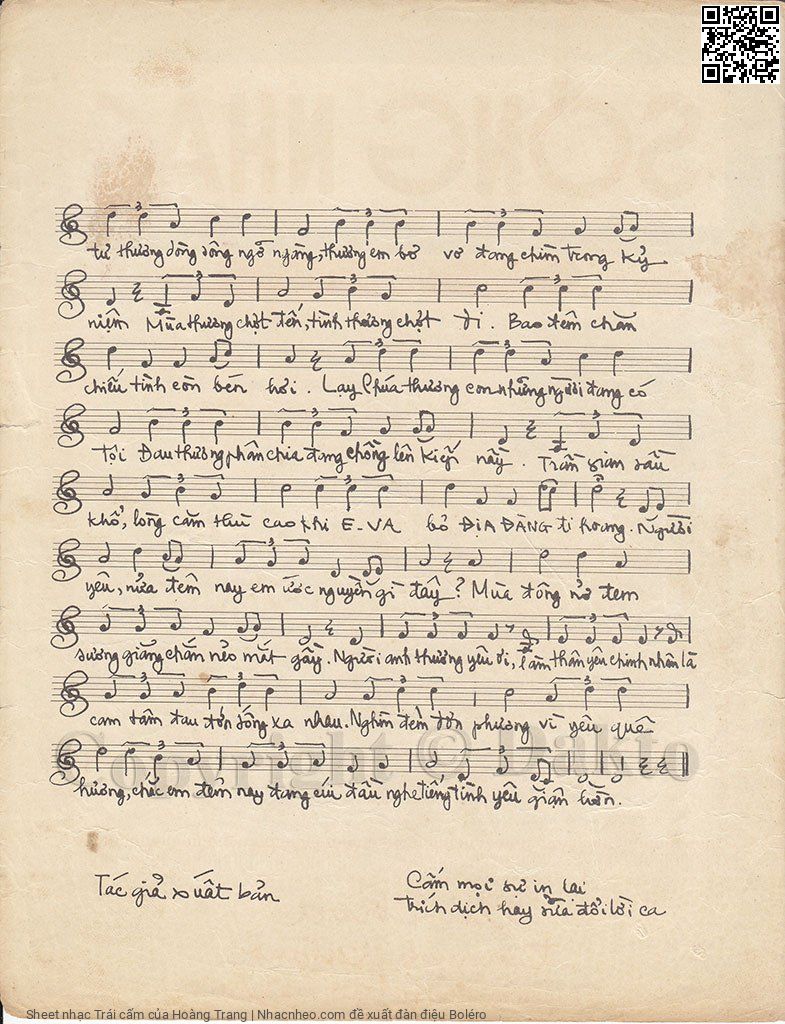 tư thương dòng sông ngỡ ngàng, thương em bơ vơ đang chìm trong kỷ
niệm Mùa thương chợt đến, tình thương chợt đi. Bao đêm chăn
chiếu tình còn bén hơi. Lạy Chúa thương con những người đang có
tội Đau thương phân chia đang chồng lên kiếp nầy. Trần gian sầu
khổ, lòng căm thù cao khi E-VA bỏ ĐỊA ĐÀNG đi hoang. Người
yêu, nửa đêm nay em ước nguyền gì đây? Mùa đông nở đem
sương giăng chắn nẻo mắt gầy. Người anh thương yêu ơi, làm thân yêu chinh nhân là
cam tâm đau đớn sống xa nhau. Nghìn đêm đơn phương vì yêu quê
hương, chắc em đêm nay đang cúi đầu nghe tiếng tình yêu giận hờn.
Tác giả xuất bản
Cấm mọi sự in lại
trích dịch hay sửa đổi lời ca
Copyright © Dakto
Sheet nhạc Trái cấm của Hoàng Trang | Nhacnheo.com đề xuất đàn điệu Boléro